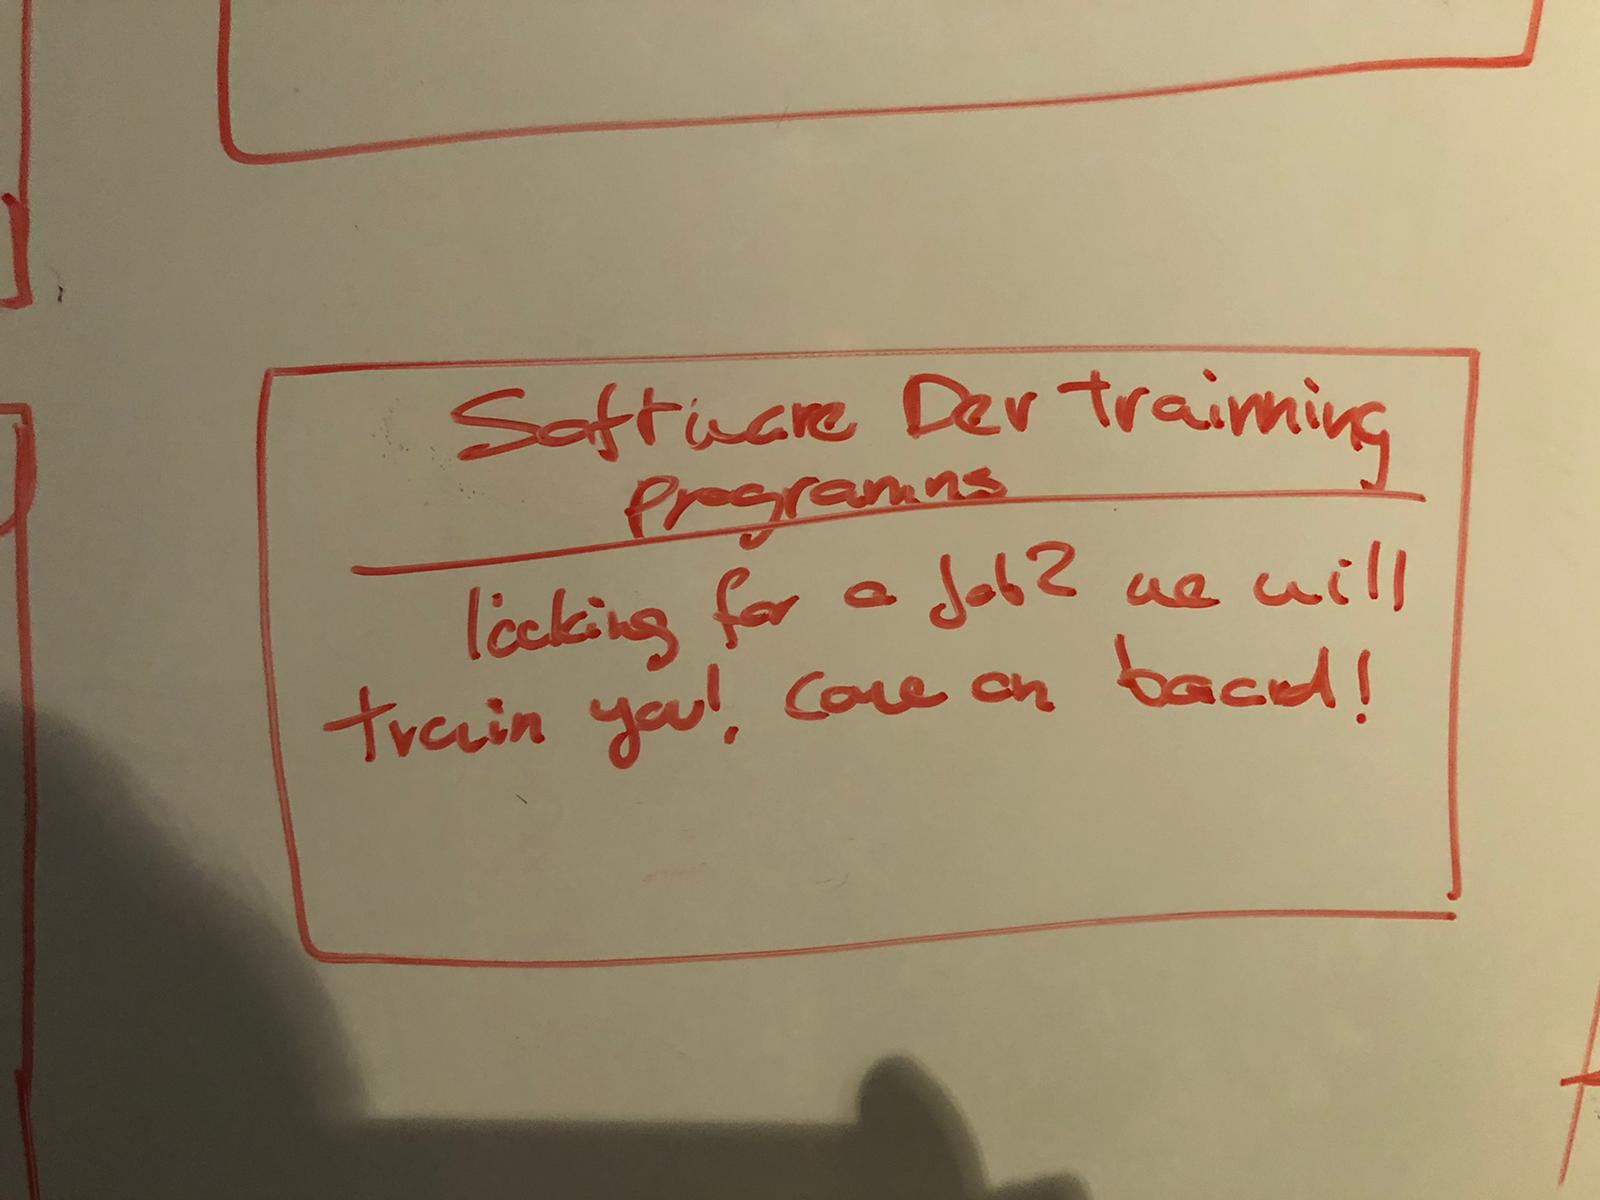 Software Dev training
programms
looking for a Job? we will
train you! come on board!